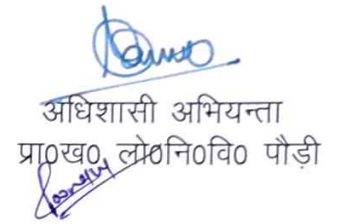 अधिशासी अभियन्ता
प्रा०ख०, लो०नि०वि० पौड़ी